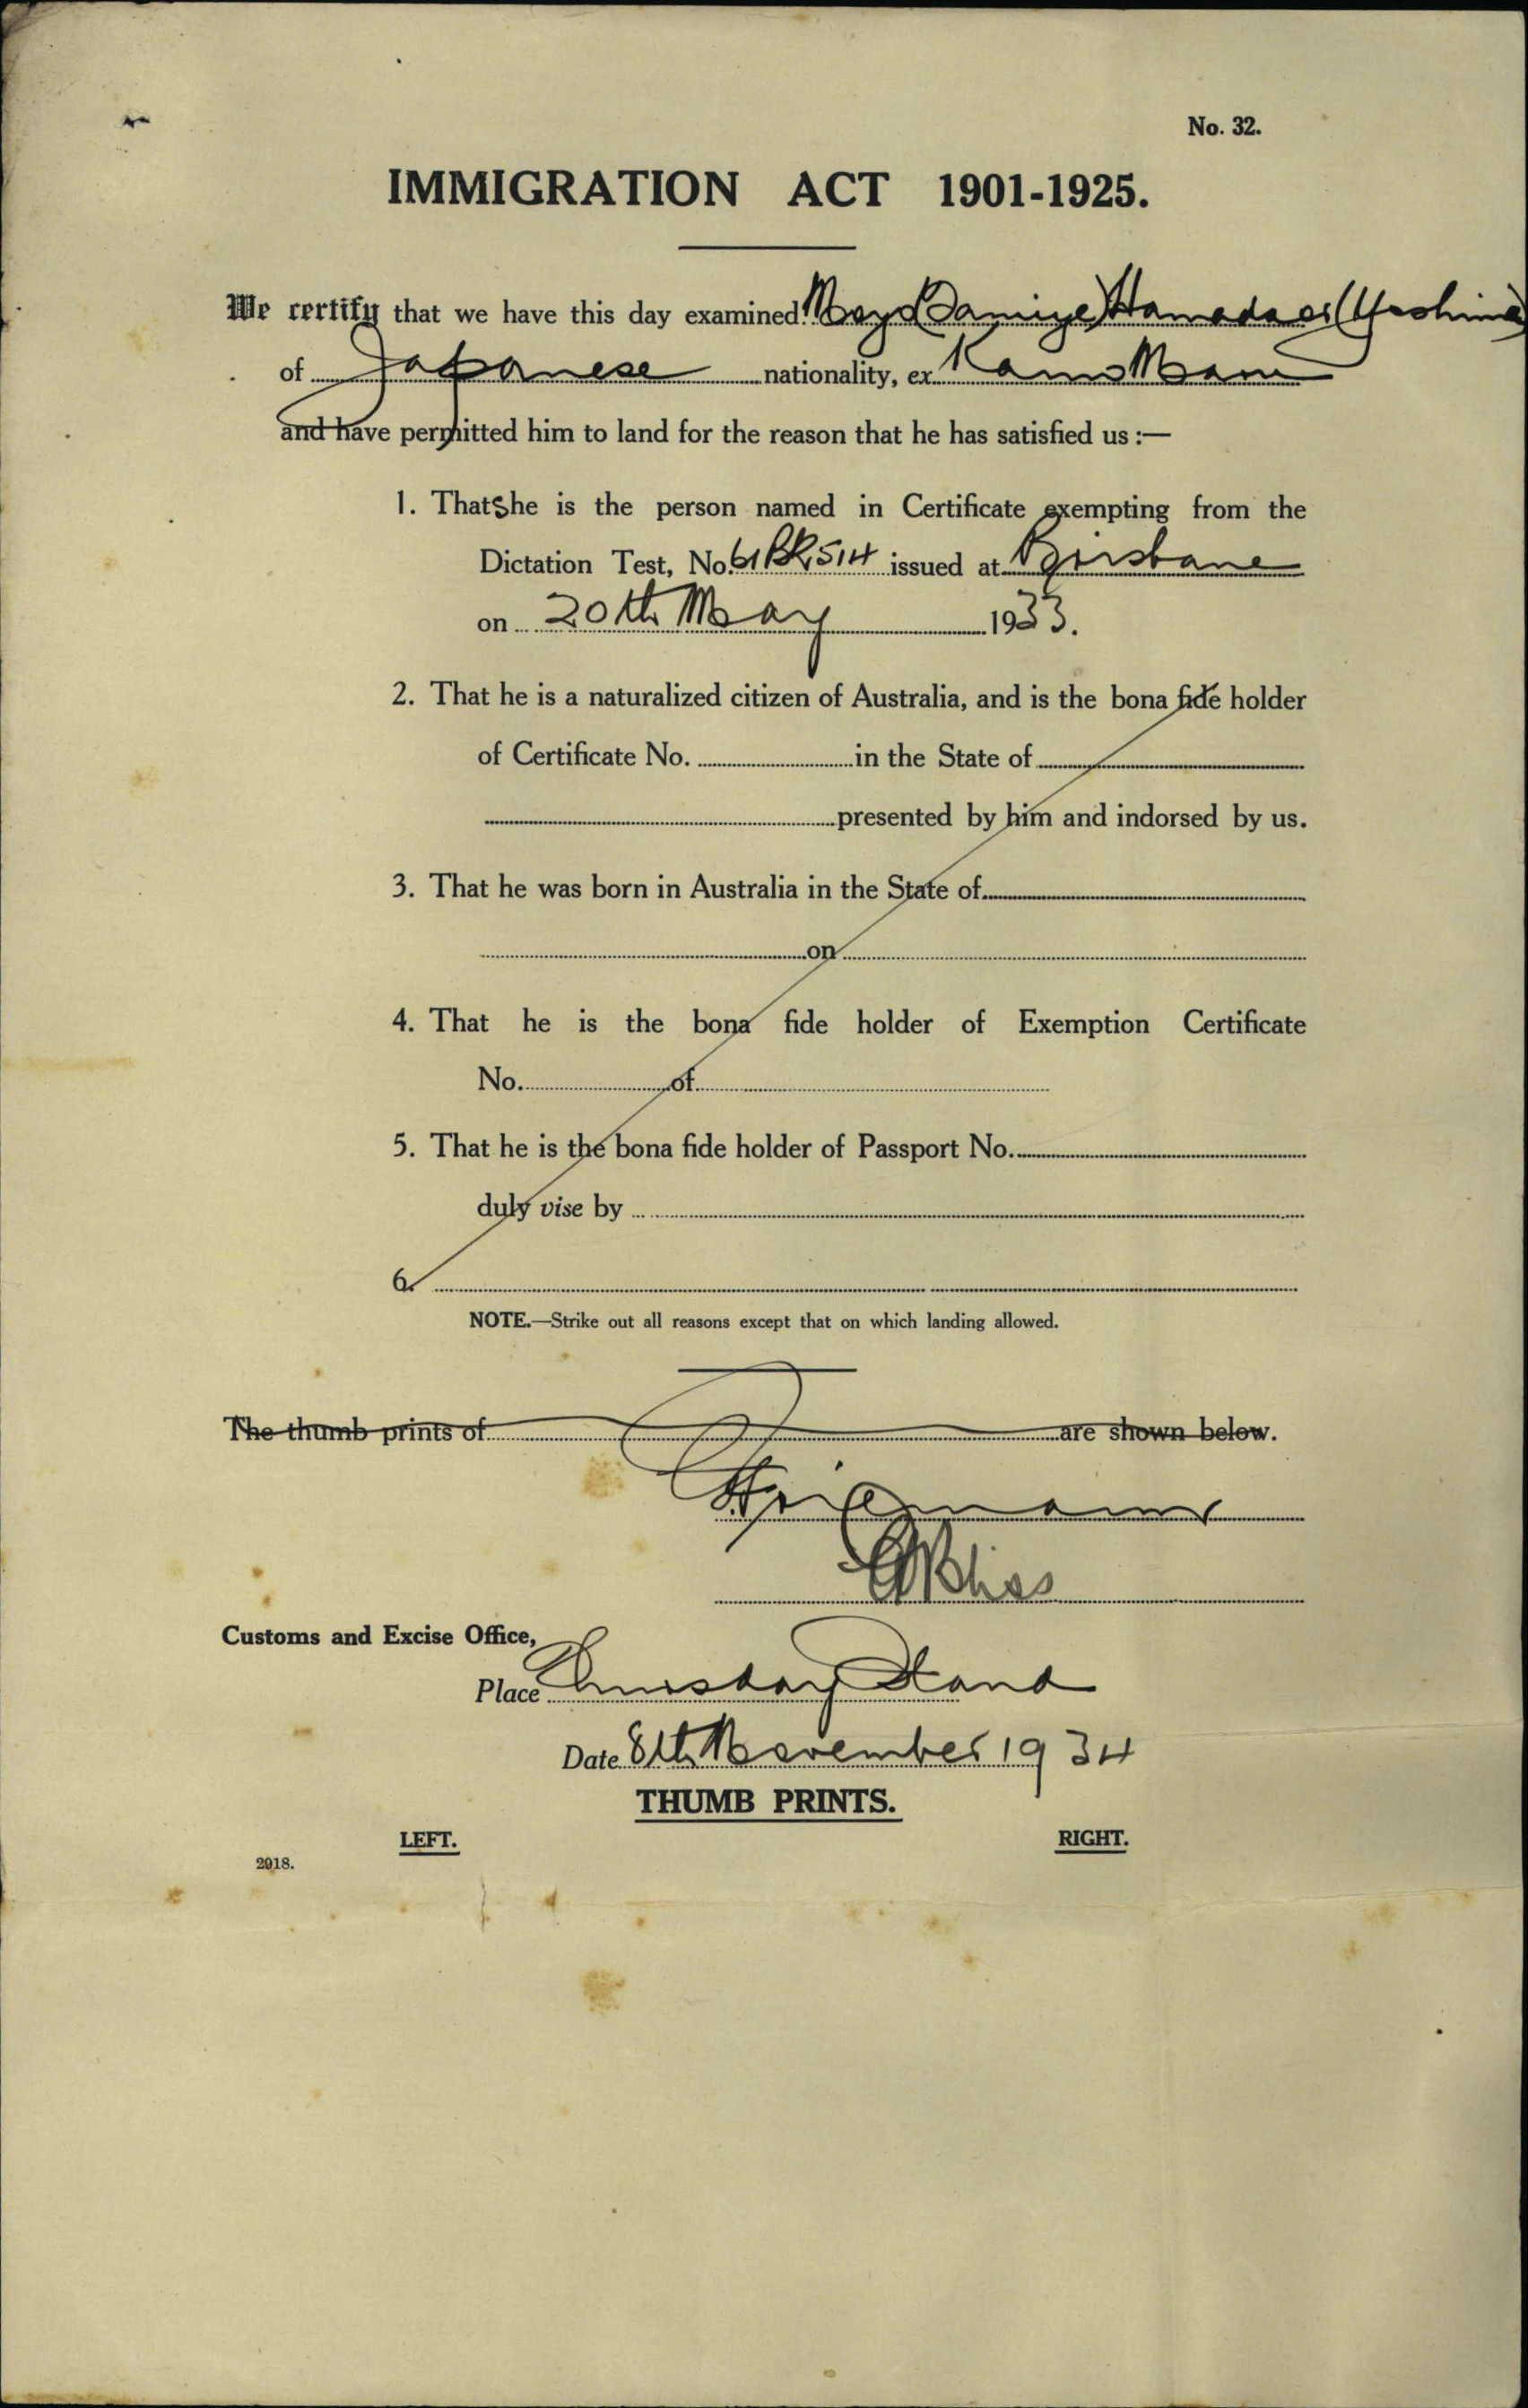 No. 32.
IMMIGRATION ACT 1901-1925.
We certify that we have this day examined Hamada or
of Japanese nationality, ex Kamo Maru
and have permitted him to land for the reason that he has satisfied us :—
1. That She is the person named in Certificate exempting from the
Dictation Test, No. issued at Brisbane
on 20th May 1933.
2. That he is a naturalized citizen of Australia, and is the bona fide holder
of Certificate No. in the State of
presented by him and indorsed by us.
3. That he was born in Australia in the State of
on
4. That he is the bona fide holder of Exemption Certificate
No. of
5. That he is the bona fide holder of Passport No.
duly vise by
6.
NOTE.—Strike out all reasons except that on which landing allowed.
The thumb prints of are shown below.
Customs and Excise Office,
Place Thursday Island
Date 8th November 1934
THUMB PRINTS.
LEFT. RIGHT.
2918.